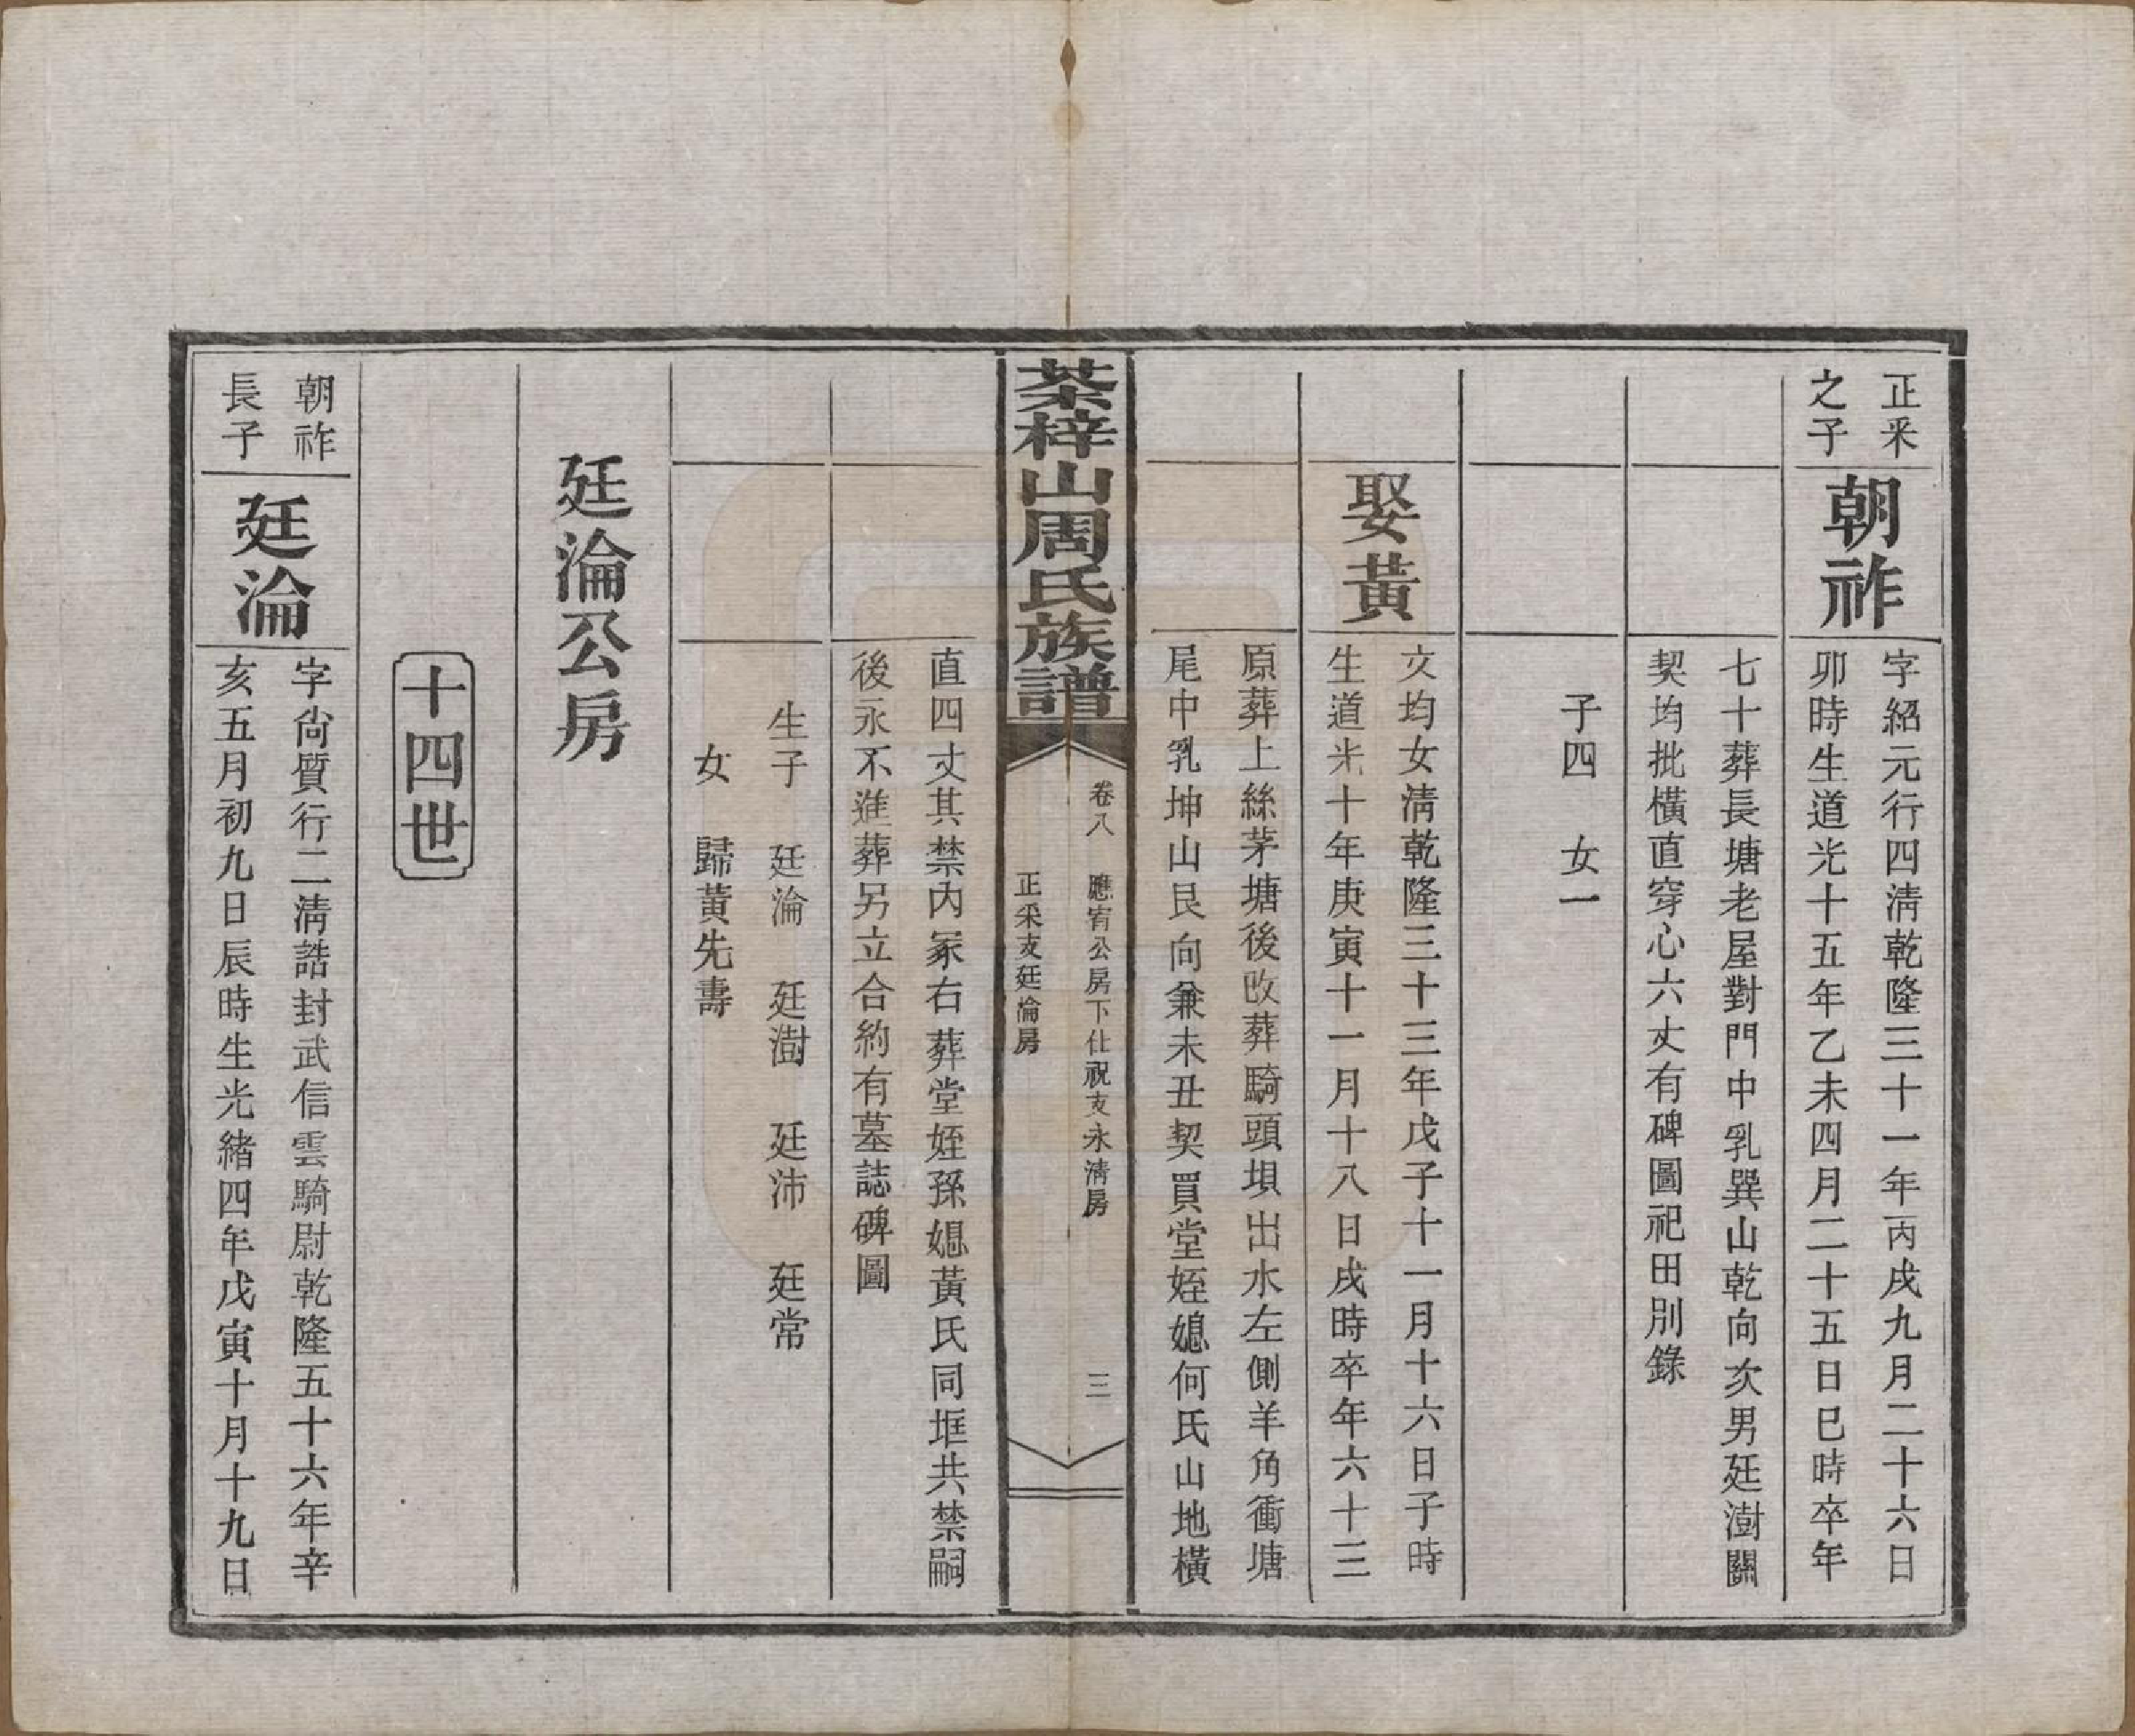 正采
之子
朝祚
字紹元行四淸乾隆三十一年丙戌九月二十六日
卯時生道光十五年乙未四月二十五日巳時卒年
七十葬長塘老屋對門中乳巽山乾向次男廷澍關
契均批橫直穿心六丈有碑圖祀田別錄
子四 女一
娶黃
文均女淸乾隆三十三年戊子十一月十六日子時
生道光十年庚寅十一月十八日戌時卒年六十三
原葬上絲茅塘後改葬騎頭垻出水左側羊角衝塘
尾中乳坤山艮向兼未丑契買堂姪媳何氏山地橫
茶梓山周氏族譜
卷八 應宥公房下仕祝支永淸房
正采支廷淪房
三
直四丈其禁內冢右葬堂姪孫媳黃氏同堆共禁嗣
後永不進葬另立合約有墓誌碑圖
生子 廷淪 廷澍 廷沛 廷常
女 歸黃先壽
廷淪公房
十四世
朝祚
長子
廷淪
字尙質行二淸誥封武信雲騎尉乾隆五十六年辛
亥五月初九日辰時生光緖四年戊寅十月十九日